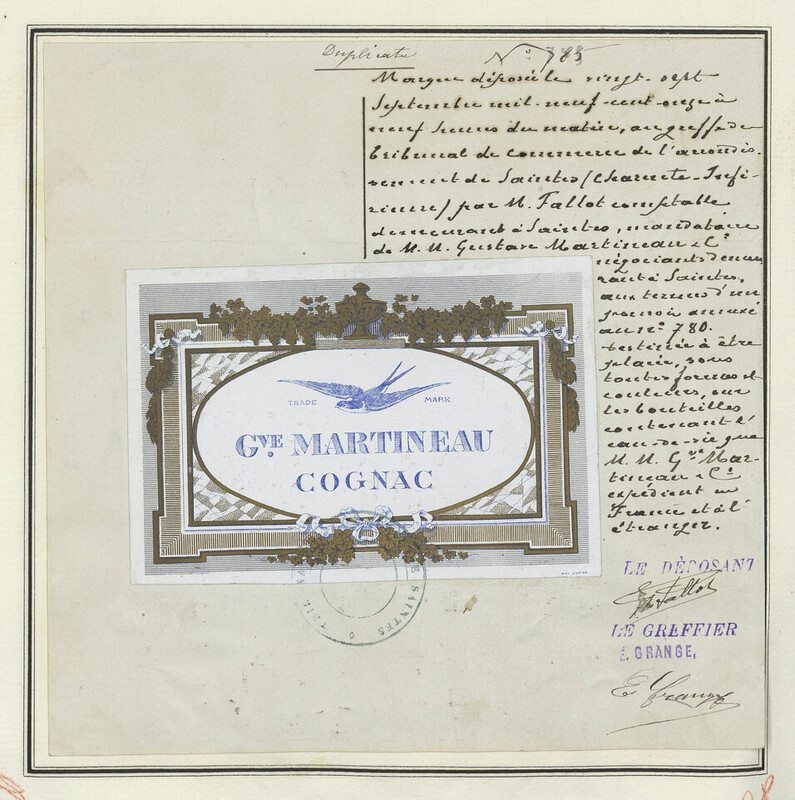 Duplicata
N° 785
Marque déposée le vingt-sept
Septembre mil-neuf-cent-onze à
neuf heures du matin, au greffe du
tribunal de commerce de l'arrondis-
sement de Saintes (Charente-Infé-
rieure) par M. Fallot comptable
demeurant à Saintes, mandataire
de M. M. Gustave Martineau & Cie
négociants demeu-
rant à Saintes,
aux termes d'un
pouvoir annexé
au n° 780.
Destinée à être
placée, sous
toutes formes et
couleurs, sur
les bouteilles
contenant l'
eau-de-vie que
M. M. Gve Mar-
tineau & Cie
expédient en
France et à l'
étranger.
TRADE MARK
GVE. MARTINEAU
COGNAC
DE SAINTES
LE DÉPOSANT
Fallot
LE GREFFIER
E. GRANGE,
E Grange